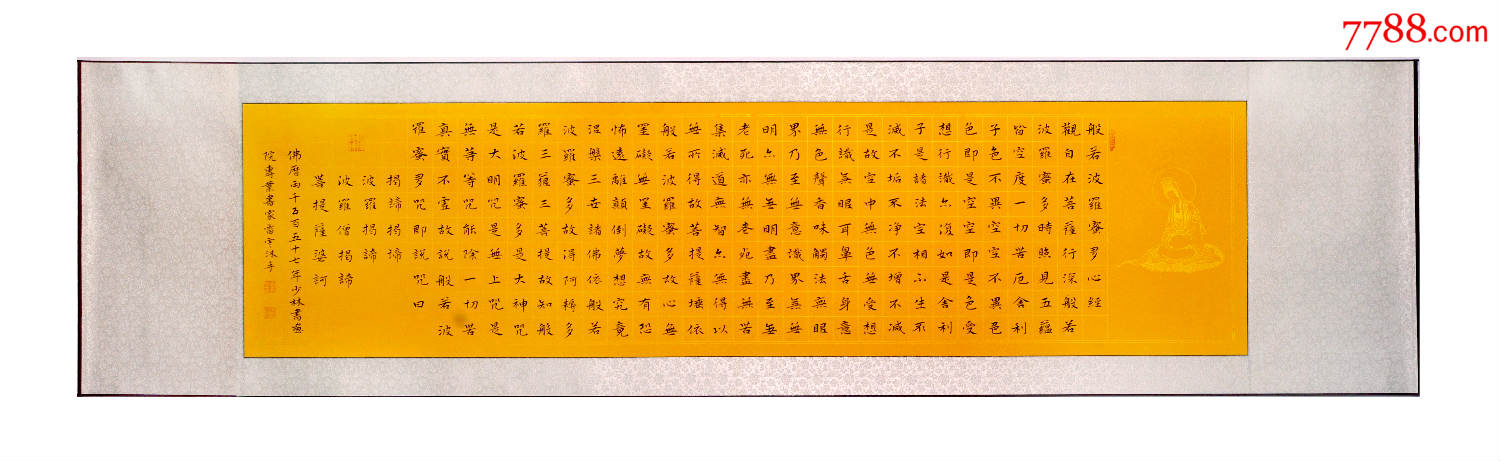 7788.com
般若波羅蜜多心經
觀自在菩薩行深般若
波羅蜜多時照見五蘊
皆空度一切苦厄舍利
子色不異空空不異色
色即是空空即是色受
想行識亦復如是舍利
子是諸法空相不生不
滅不垢不净不增不減
是故空中無色無受想
行識無眼耳鼻舌身意
無色聲香味觸法無眼
界乃至無意識界無無
明亦無無明盡乃至無
老死亦無老死盡無苦
集滅道無智亦無得以
無所得故菩提薩埵依
般若波羅蜜多故心無
罣礙無罣礙故無有恐
怖遠離顛倒夢想究竟
涅槃三世諸佛依般若
波羅蜜多故得阿耨多
羅三藐三菩提故知般
若波羅蜜多是大神咒
是大明咒是無上咒是
無等等咒能除一切苦
真實不虛故說般若波
羅蜜多咒即說咒曰
揭諦揭諦
波羅揭諦
波羅僧揭諦
菩提薩婆訶
佛曆兩千五百五十七年少林書畫
院專業書家宇沐手